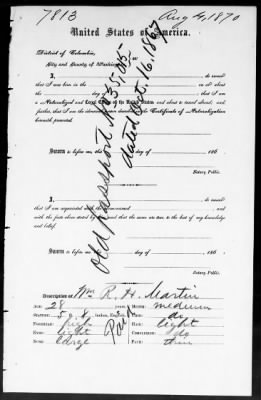 7813
Aug 4, 1870
United States of America.
District of Columbia,
City and County of Washington,
do swear
that I was born in
day of
that I am
a Naturalized and Loyal Citizen of the United States and about to travel abroad; and
further, that I am the identical person described in the Certificate of Naturalization
herewith presented.
Sworn to before me, this day of 186
Notary Public.
old passport No 35,035
dated Oct. 16, 1867
do swear
that I am acquainted with the above named
and with the facts above stated by
and that the same are true to the best of my knowledge
and belief.
Sworn to before me, this day of 186
Notary Public.
Description of Wm R. H. Martin
Age: 28 years
Mouth: medium
Stature: 5 9 8 inches, English.
Chin: do
Forehead: high
Hair: light
Eyes: light
Complexion: do
Nose: large
Face: thin
Paid